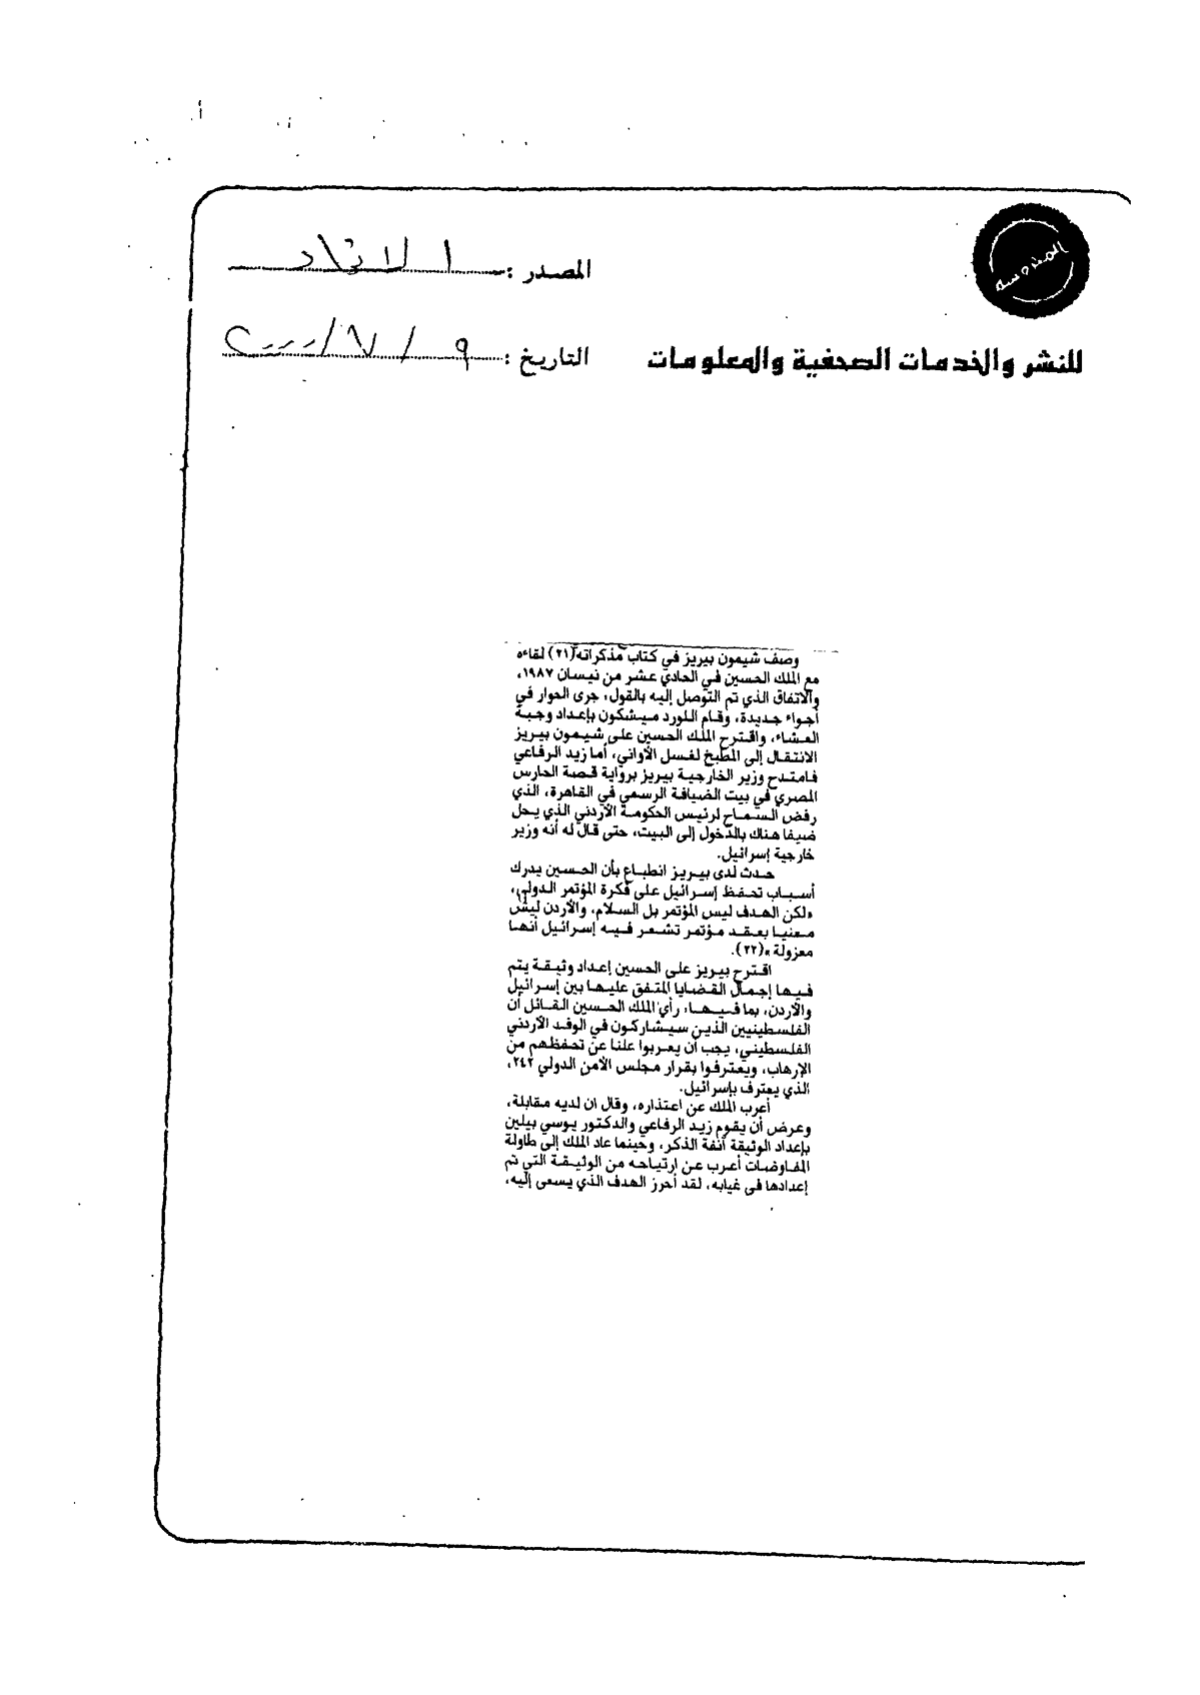 المحروسة
المصدر : الاتحاد
للنشر والخدمات الصحفية والمعلومات
التاريخ : ٩ / ٧ / ٢٠٠٠
وصف شيمون بيريز في كتاب مذكراته(٢١) لقاءه
مع الملك الحسين في الحادي عشر من نيسان ١٩٨٧،
والاتفاق الذي تم التوصل إليه بالقول: جرى الحوار في
أجواء جديدة، وقام اللورد ميشكون بإعداد وجبة
العشاء، واقترح الملك الحسين على شيمون بيريز
الانتقال إلى المطبخ لغسل الأواني، أما زيد الرفاعي
فامتدح وزير الخارجية بيريز برواية قصة الحارس
المصري في بيت الضيافة الرسمي في القاهرة، الذي
رفض السماح لرئيس الحكومة الأردني الذي يحل
ضيفا هناك بالدخول إلى البيت، حتى قال له أنه وزير
خارجية إسرائيل.
حدث لدى بيريز انطباع بأن الحسين يدرك
أسباب تحفظ إسرائيل على فكرة المؤتمر الدولي،
«لكن الهدف ليس المؤتمر بل السلام، والأردن ليس
معنيا بعقد مؤتمر تشعر فيه إسرائيل أنها
معزولة »(٢٢).
اقترح بيريز على الحسين إعداد وثيقة يتم
فيها إجمال القضايا المتفق عليها بين إسرائيل
والأردن، بما فيها، رأي الملك الحسين القائل أن
الفلسطينيين الذين سيشاركون في الوفد الأردني
الفلسطيني، يجب أن يعربوا علنا عن تحفظهم من
الإرهاب، ويعترفوا بقرار مجلس الأمن الدولي ٢٤٢،
الذي يعترف بإسرائيل.
أعرب الملك عن اعتذاره، وقال ان لديه مقابلة،
وعرض أن يقوم زيد الرفاعي والدكتور يوسي بيلين
بإعداد الوثيقة آنفة الذكر، وحينما عاد الملك إلى طاولة
المفاوضات أعرب عن ارتياحه من الوثيقة التي تم
إعدادها في غيابه، لقد أحرز الهدف الذي يسعى إليه،